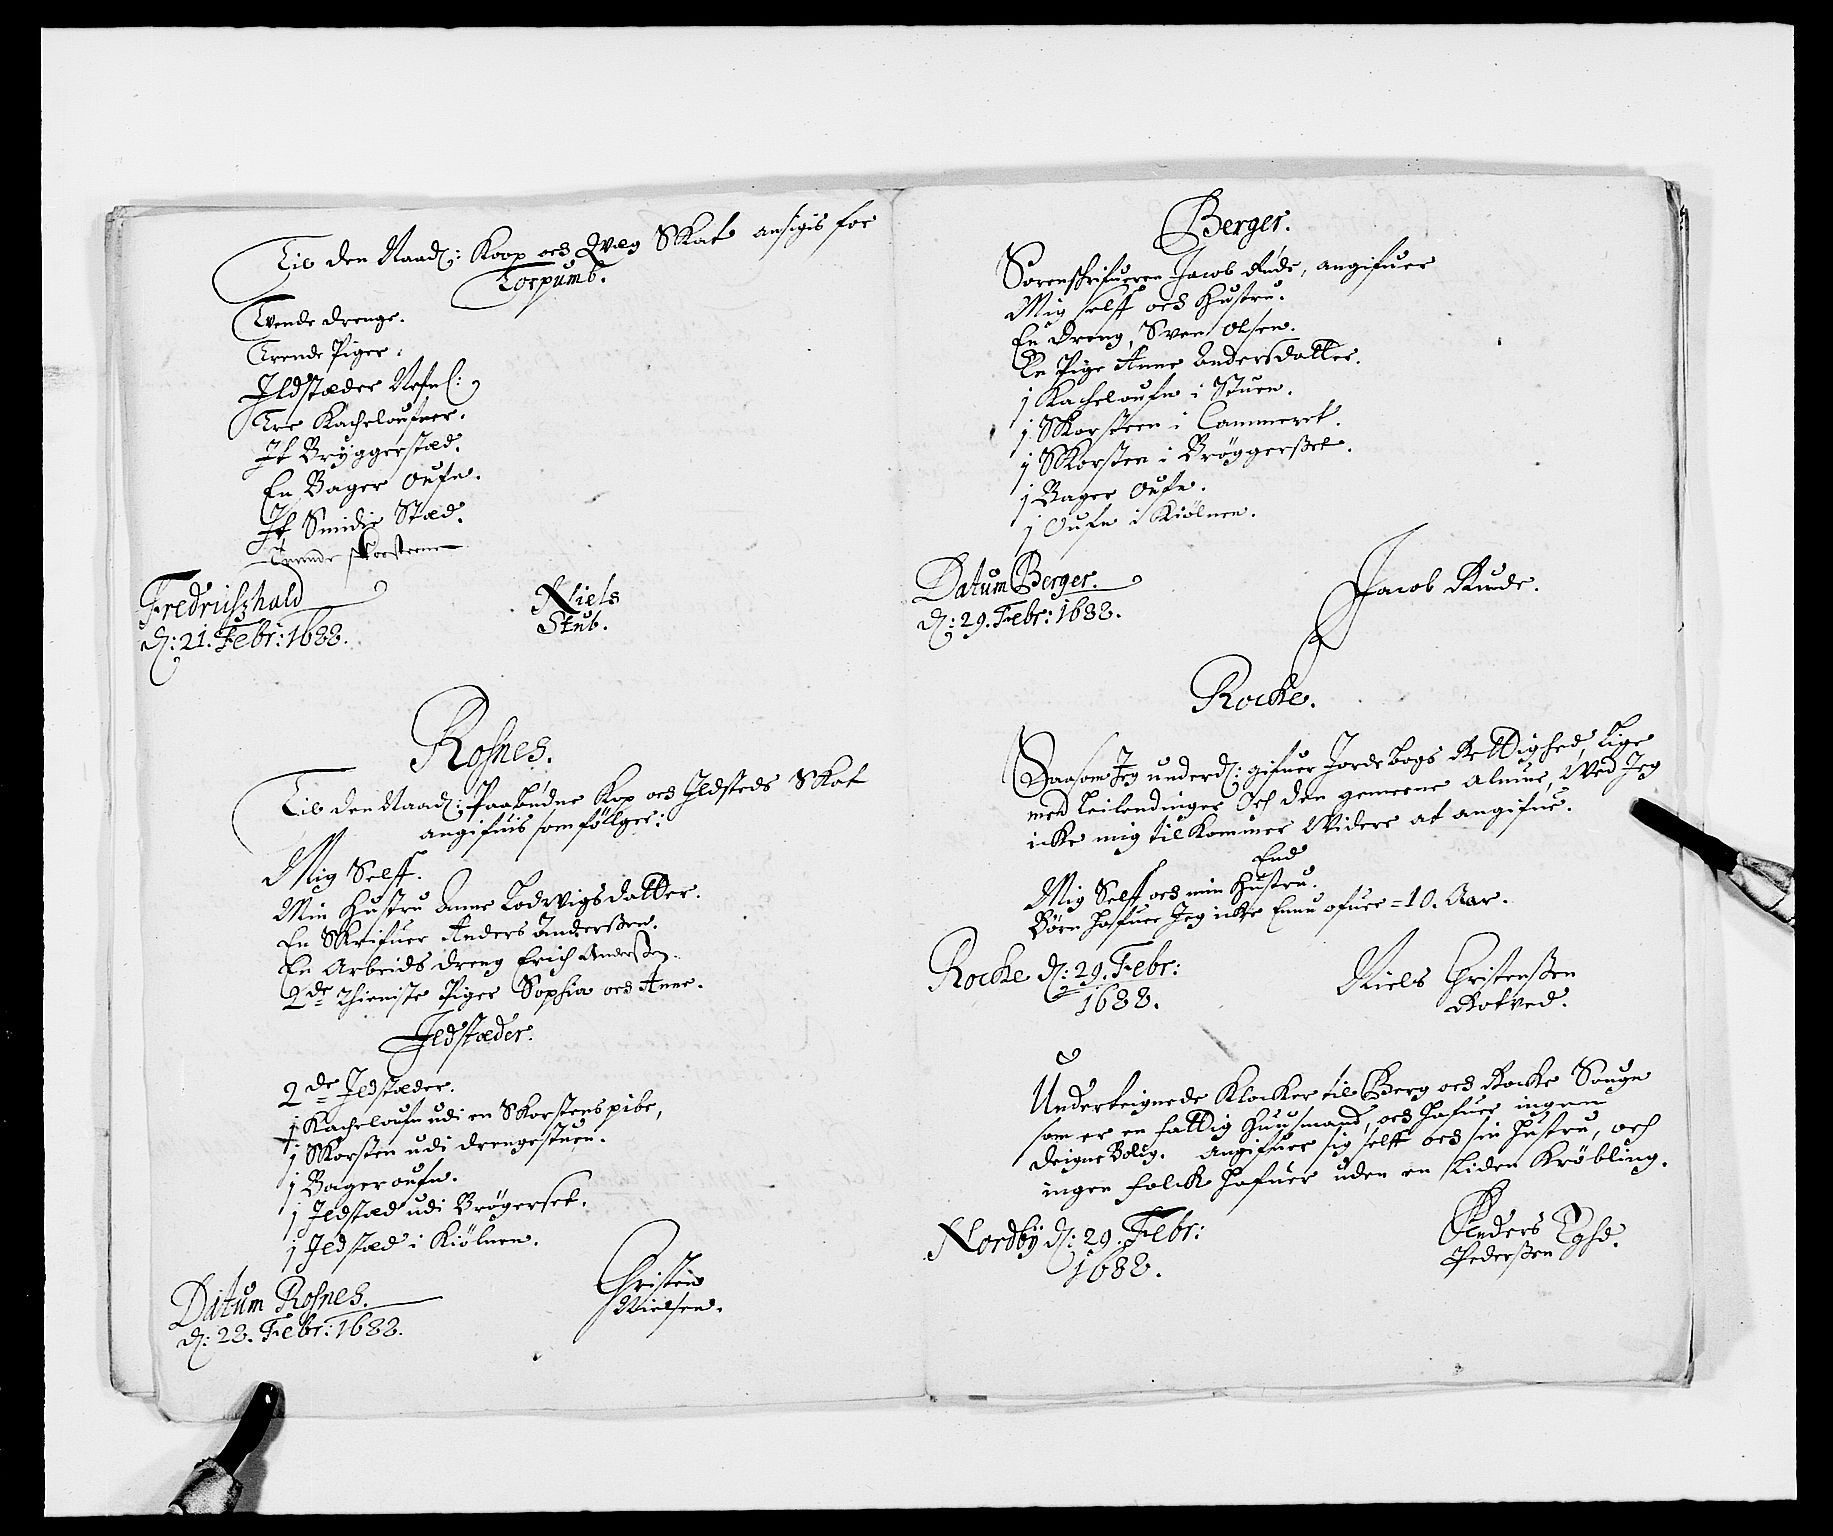 Til den Naad: Koop och Qvæg Skat ansigis for
Torpumb.
Tvende drenge.
Trende Piger.
Ildstæder Nefnl:
Tre Kacheloufner.
It Bryggerstæd.
En Bager Oufn.
It Smidie Stæd.
Trende skorsteene
Fredrichshald
d: 21. Febr: 1688.
Niels
Stub.
Rosnes.
Til den Naad: Paabudne Kop och Ildsteds Skat
angifuis som föllger:
Mig Selff.
Min Hustru Anne Lodwigsdatter.
En Skrifuer Anders Anderßen.
En Arbeids dreng Erich Anderßen.
2de Thieniste Piger Sophia och Anne.
Ildstæder.
2de Ildstæder.
1 Kacheloufn udi en Skorstens pibe,
1 Skorsten udi drengestuen.
1 Bageroufn.
1 Ildstæd udi Brögerset.
1 Ildstæd i Kiölnen.
Datum Rosnes.
d: 28. Febr: 1688.
Christen
Nielsen.
Berger.
Sorenschrifueren Jacob Rude, angifuer
Mig selff och Hustru.
En Dreng, Sven Olsen.
En Pige Anne Andersdatter.
1 Kacheloufn i Stuen.
1 Skorsteen i Cammeret.
1 Skorsten i Bröggerßet.
1 Bager Oufn.
1 Oufn i Kiölnen.
Datum Berger.
d: 29. Febr: 1688.
Jacob Rude.
Rocke.
Saasom Jeg underd: gifuer Jordebogs Rettighed, lige
med Leilendinger Och den gemeene Almue, Wed Jeg
icke mig tilkommer Widere at angifue.
End
Mig Selff och min Hustru.
Börn hafuer Jeg icke Ennu ofuer = 10. Aar.
Rocke d: 29. Febr:
1688.
Niels Christenßen
Rotved.
Underteignede Klocker til Berg och Rocke Sougn
som er en fattig Huusmand, och hafuer ingen
deigne Bolig. Angifuer sig selff och sin Hustru, och
ingen folck hafuer uden en liden Kröbling.
Nordby d: 29. Febr:
1688.
Anders
Pederßen